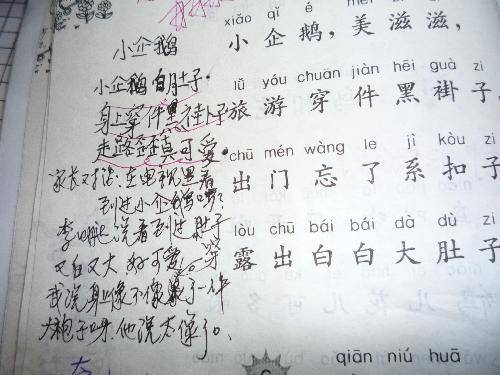 小企鹅
小企鹅白肚子.
身上穿件黑褂子
走路歪真可爱.
在电视里看
到过小企鹅吗?
说看到过肚子
又白又大 好可爱。
我说身上像不像穿了一件
大袍子呀.他说太像了。
xiǎo qǐ é
小企鹅，美滋滋，
lǚ yóu chuān jiàn hēi guà zi
旅游穿件黑褂子
chū mén wàng le jì kòu zi
出门忘了系扣子
lòu chū bái bái dà dù zi
露出白白大肚子
qiān niú huā